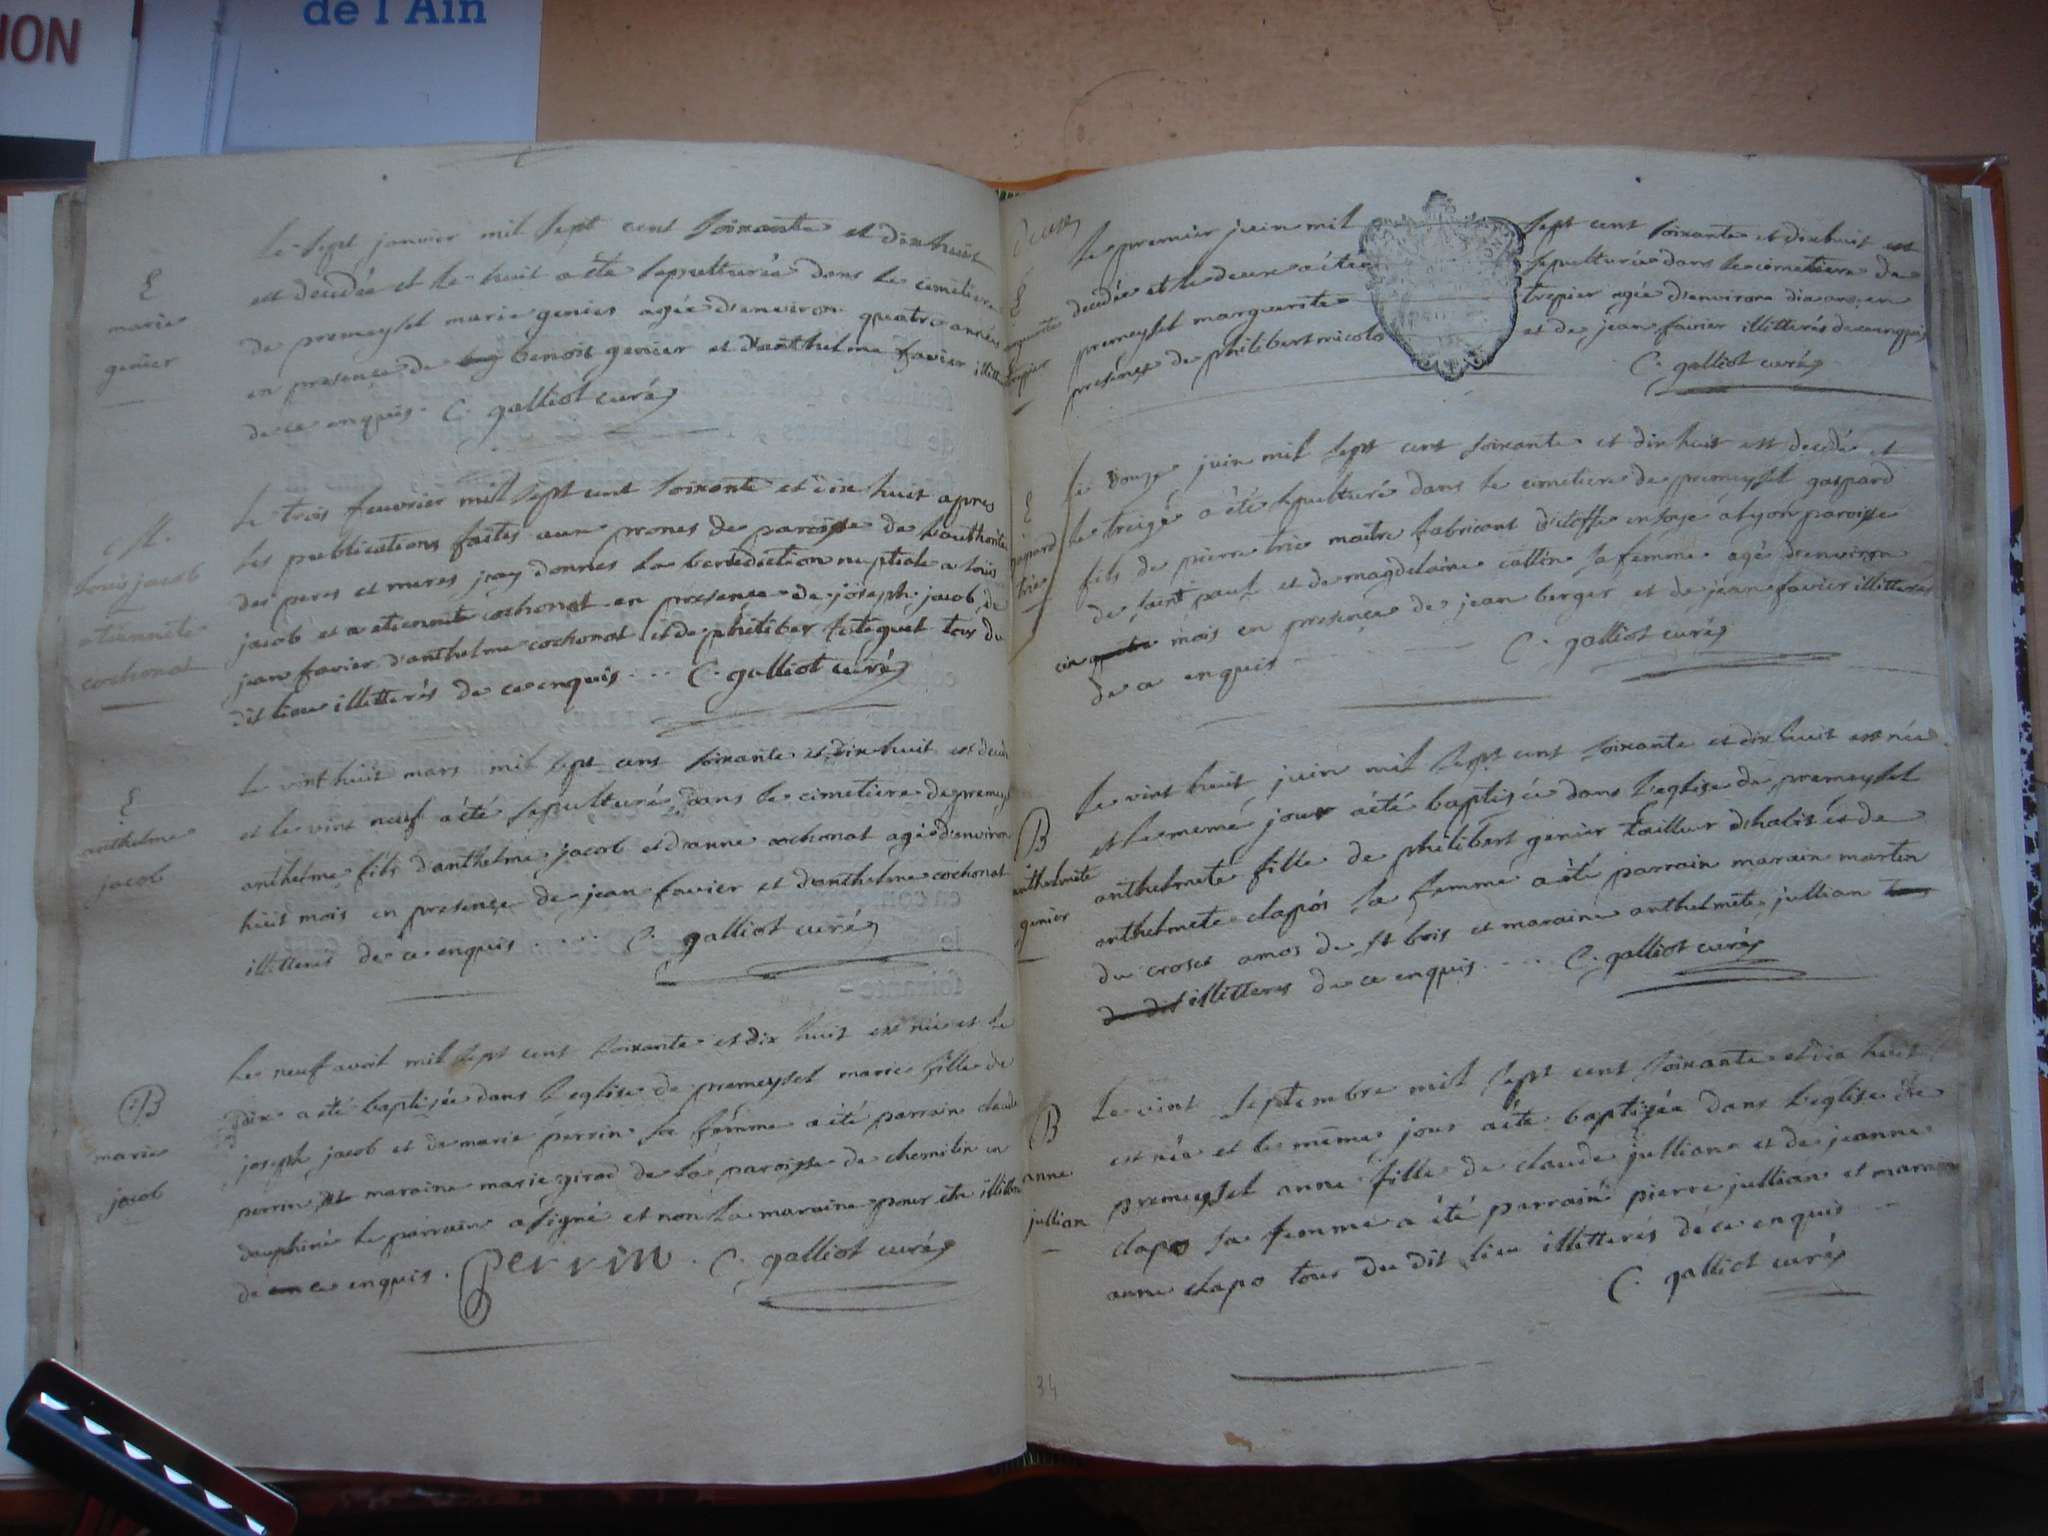 ION
de l'Ain
le sept janvier mil sept cent soixante et dix huit
est decedée et le huit a été sepulturée dans le cimetiere
de premeysel marie genier agée d'environ quatre années
en presence de benoit genier et d'anthelme favier illitt
de ce enquis. C. galliot curé
E
marie
genier
le trois feuvrier mil sept cent soixante et dix huit apres
les publications faites aux prones de paroisse de l'authorite
des peres et meres j'ay donnes la benediction nuptiale a louis
jacob et a etiennete cochonat en presence de joseph jacob de
jean favier d'anthelme cochonat et de philiber tous du
dit lieu illitterés de ce enquis ... C. galliot curé
M.
louis jacob
etiennete
cochonat
le vint huit mars mil sept cent soixante et dix huit est decedé
et le vint neuf a été sepulturé dans le cimetiere de premeys
anthelme fils d'anthelme jacob et d'anne cochonat agé d'environ
huit mois en presence de jean favier et d'anthelme cochonat
illitteres de ce enquis .... C. galliot curé
E
anthelme
jacob
le neuf avril mil sept cent soixante et dix huit est née et le
dix a été baptisée dans l'eglise de premeysel marie fille de
joseph jacob et de marie perrin sa femme a été parrain claude
perrin et maraine marie girod de la paroisse de chemilin en
dauphiné le parrain a signé et non la maraine pour etre illitere
de ce enquis. perrin. C. galliot curé
B
marie
jacob
le premier juin mil sept cent soixante et dixhuit est
decedée et le deux a été sepulturée dans le cimetiere de
premeysel marguerite trepier agée d'environ dix ans en
presence de philibert micolo et de jean favier illitterés de ce enquis
C. galliot curé
E
marguerite
trepier
le douze juin mil sept cent soixante et dix huit est decedé et
le treize a été sepulturé dans le cimetiere de premeysel gaspard
fils de pierre trie maitre fabricant d'etoffe en soye a lyon paroisse
de saint paul et de magdelaine collin sa femme agé d'environ
cin quatre mois en presence de jean berger et de jean favier illitterés
de ce enquis C. galliot curé
E
gaspard
trie
le vint huit juin mil sept cent soixante et dix huit est née
et le meme jour a été baptisée dans l'eglise de premeysel
anthelmete fille de philibert genier tailleur d'habis et de
anthelmete clapos sa femme a été parrain marain martin
du croset amos de st bois et maraine anthelmete jullian tous
du dit illitteres de ce enquis .... C. galliot curé
B
anthelmete
genier
le vint septembre mil sept cent soixante et dix huit
est née et le même jour a été baptisée dans l'eglise de
premeysel anne fille de claude jullian et de jeanne
clapo sa femme a été parrain pierre jullian et marraine
anne clapo tous du dit lieu illitterés de ce enquis
C. galliot curé
B
anne
jullian
34